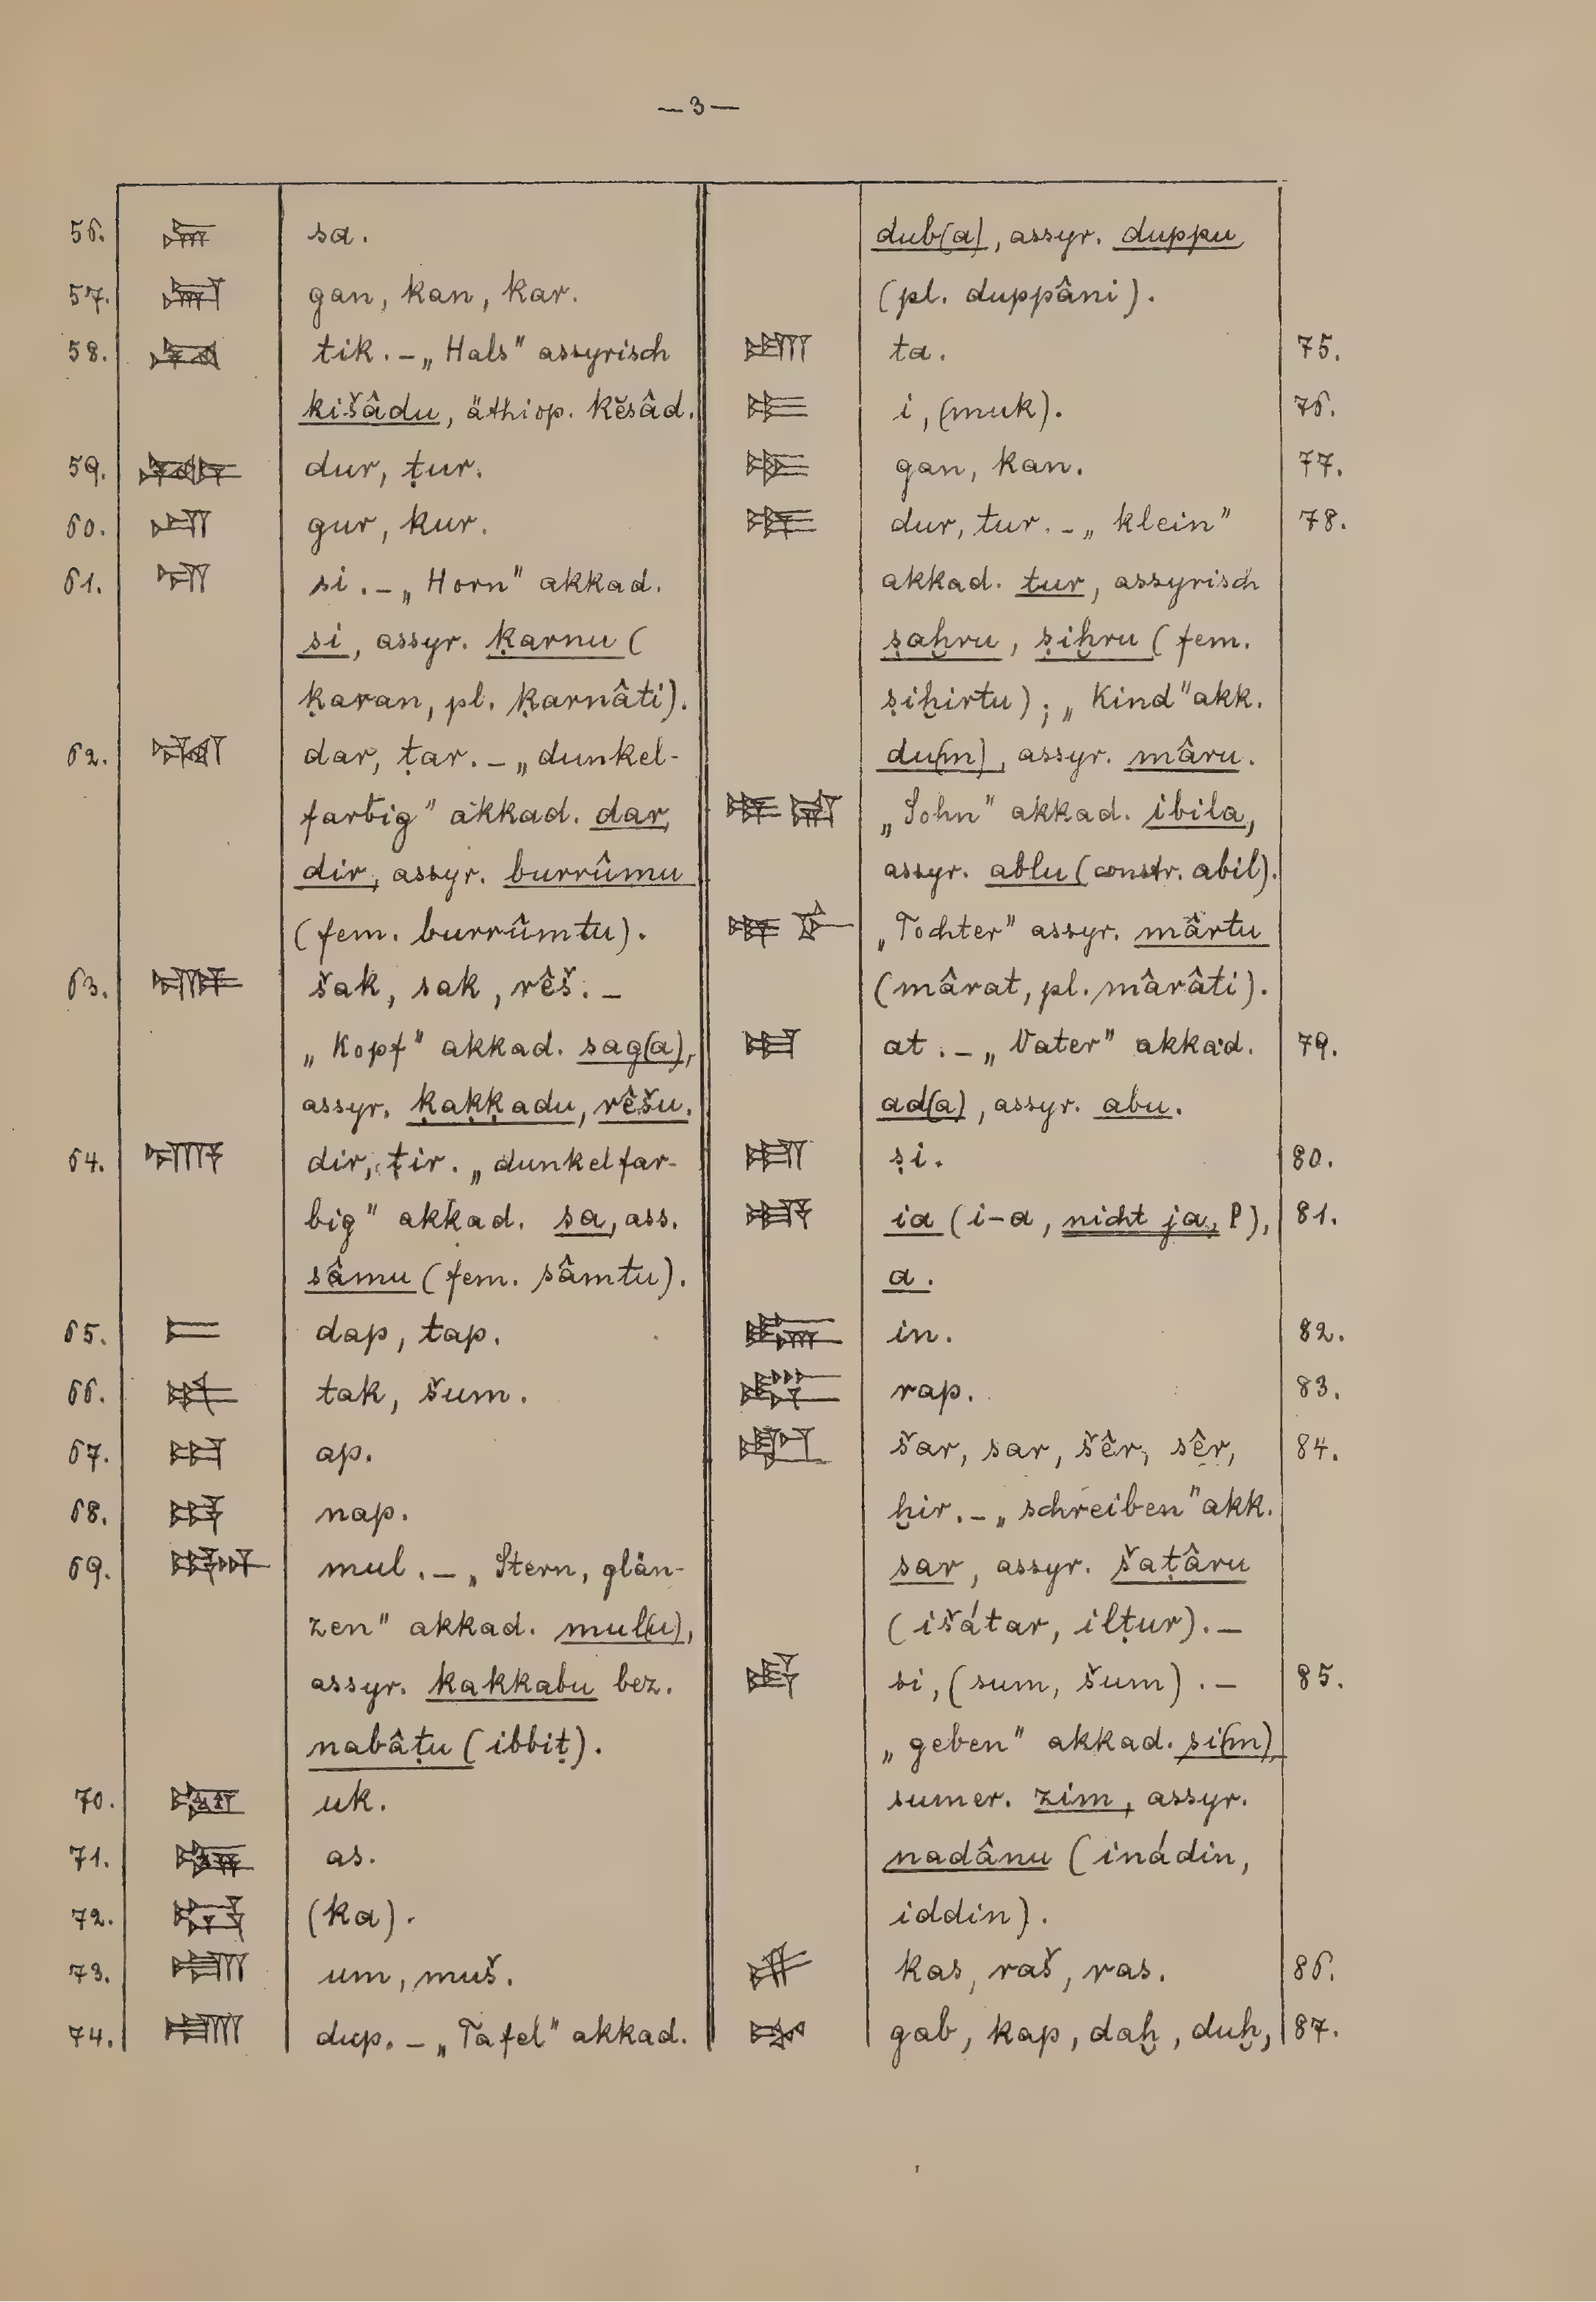 — 3 —
56. sa.
57. gan, kan, kar.
58. tik. – „Hals" assyrisch
kišâdu, äthiop. kĕsâd.
59. dur, ṭur.
60. gur, kur.
61. si. – „Horn" akkad.
si, assyr. ḳarnu (
ḳaran, pl. ḳarnâti).
62. dar, ṭar. – „dunkel-
farbig" akkad. dar,
dir, assyr. burrûmu
(fem. burrûmtu).
63. šak, sak, rêš. –
„Kopf" akkad. sag(a),
assyr. ḳaḳḳadu, rêšu.
64. dir, ṭir. „dunkelfar-
big" akkad. sa, ass.
sâmu (fem. sâmtu).
65. dap, tap.
66. tak, šum.
67. ap.
68. nap.
69. mul. – „Stern, glän-
zen" akkad. mul(u),
assyr. kakkabu bez.
nabâṭu (ibbiṭ).
70. uk.
71. as.
72. (ka).
73. um, muš.
74. dup. – „Tafel" akkad.
dub(a), assyr. duppu
(pl. duppâni).
ta. 75.
i, (muk). 76.
gan, kan. 77.
dur, tur. – „klein" 78.
akkad. tur, assyrisch
ṣaḫru, ṣiḫru (fem.
ṣiḫirtu); „Kind" akk.
du(m), assyr. mâru.
„Sohn" akkad. ibila,
assyr. ablu (constr. abil).
„Tochter" assyr. mârtu
(mârat, pl. mârâti).
at. – „Vater" akkad. 79.
ad(a), assyr. abu.
ṣi. 80.
ia (i-a, nicht ja, P), 81.
a.
in. 82.
rap. 83.
šar, sar, šêr, sêr, 84.
ḫir. – „schreiben" akk.
sar, assyr. šaṭâru
(išátar, ilṭur). –
si, (sum, šum). – 85.
„geben" akkad. si(m),
sumer. zim, assyr.
nadânu (inádin,
iddin).
kas, raš, ras. 86.
gab, kap, daḫ, duḫ, 87.